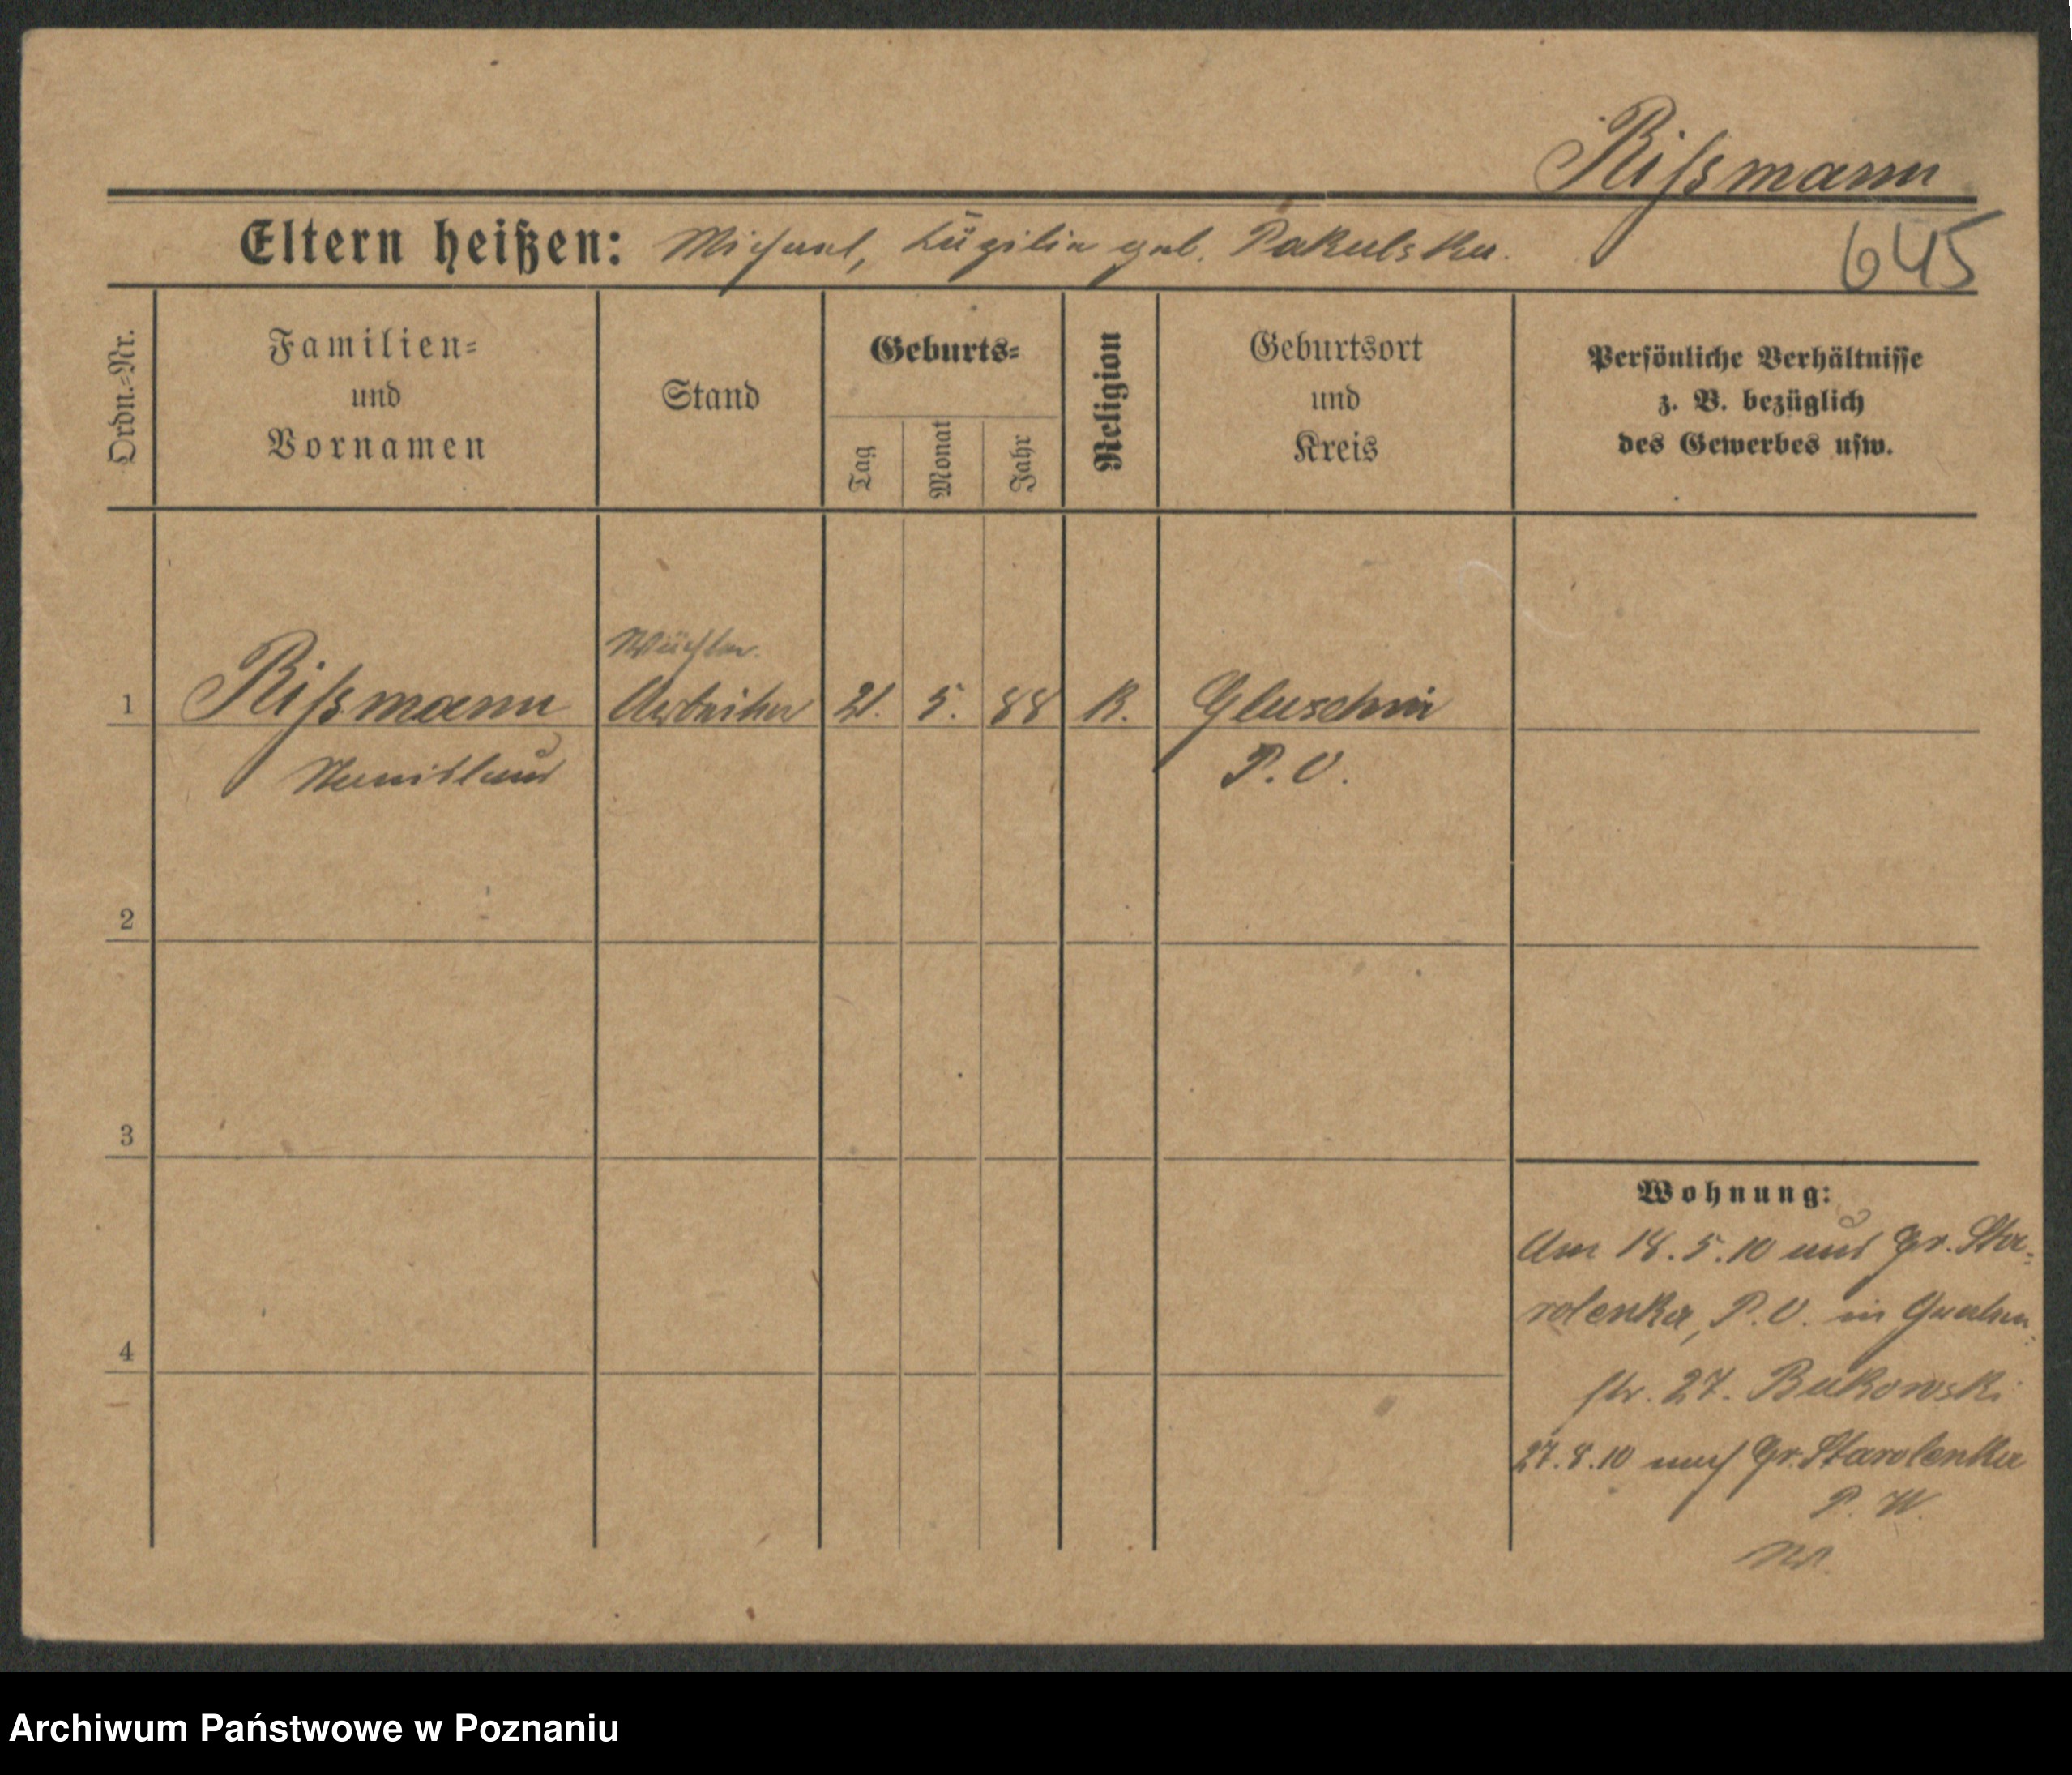 Rißmann
Eltern heißen: Michael, geb. Pakulska.
645
Ordn.=Nr.
Familien=
und
Vornamen
Stand
Geburts=
Tag
Monat
Jahr
Religion
Geburtsort
und
Kreis
Persönliche Verhältnisse
z. B. bezüglich
des Gewerbes usw.
Wächter.
1 Rißmann Arbeiter 21. 5. 88 K. Gluschin
Stanislaus P. O.
2
3
4
Wohnung:
Am 18.5.10 aus Gr. Sta=
rolenka, P. O. in
str. 27. Bukowski
27.8.10 nach Gr. Starolenka
P. W.
Archiwum Państwowe w Poznaniu